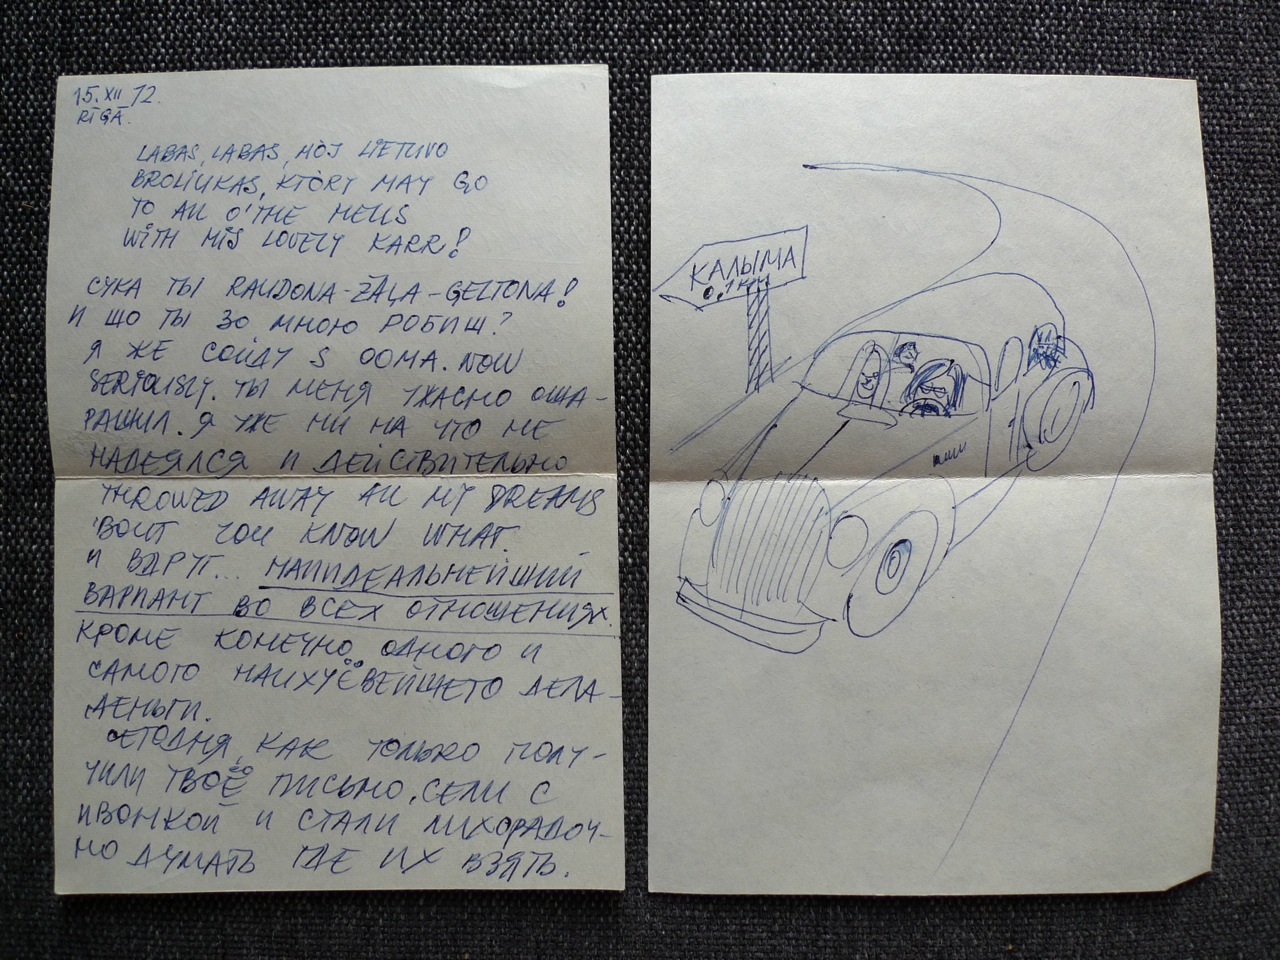 15.XII 72.
RĪGĀ.
LABAS, LABAS, MÓJ LIETUVO
BROLIUKAS, KTÓRY MAY GO
TO ALL O'THE HELLS
WITH HIS LOVELY KARR!
СУКА ТЫ RAUDONA-ŽAĻA-GELTONA!
И ШО ТЫ ЗО МНОЮ РОБИШ?
Я ЖЕ СОЙДУ S ООМА. NOW
SERIOUSLY. ТЫ МЕНЯ УЖАСНО ОША-
РАШИЛ. Я УЖЕ НИ НА ЧТО НЕ
НАДЕЯЛСЯ И ДЕЙСТВИТЕЛЬНО
THROWED AWAY ALL MY DREAMS
'BOUT YOU KNOW WHAT.
И ВДРУГ... НАИИДЕАЛЬНЕЙШИЙ
ВАРИАНТ ВО ВСЕХ ОТНОШЕНИЯХ.
КРОМЕ КОНЕЧНО ОДНОГО И
САМОГО НАИХУЁВЕЙШЕГО ДЕЛА-
ДЕНЬГИ.
СЕГОДНЯ, КАК ТОЛЬКО ПОЛУ-
ЧИЛИ ТВОЁ ПИСЬМО, СЕЛИ С
ИВОНКОЙ И СТАЛИ ЛИХОРАДОЧ-
НО ДУМАТЬ ГДЕ ИХ ВЗЯТЬ.
КАЛЫМА
0,1 КМ